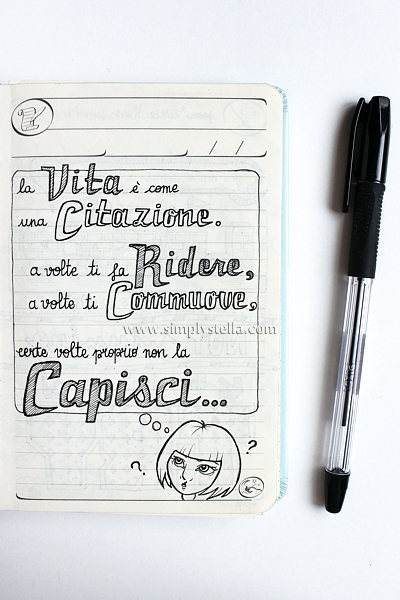 la Vita è come
una Citazione.
a volte ti fa Ridere,
a volte ti Commuove,
www.simplystella.com
certe volte proprio non la
Capisci...
? ?